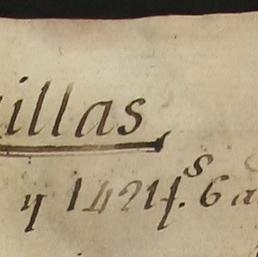 illas
y 1421f.s 6 a